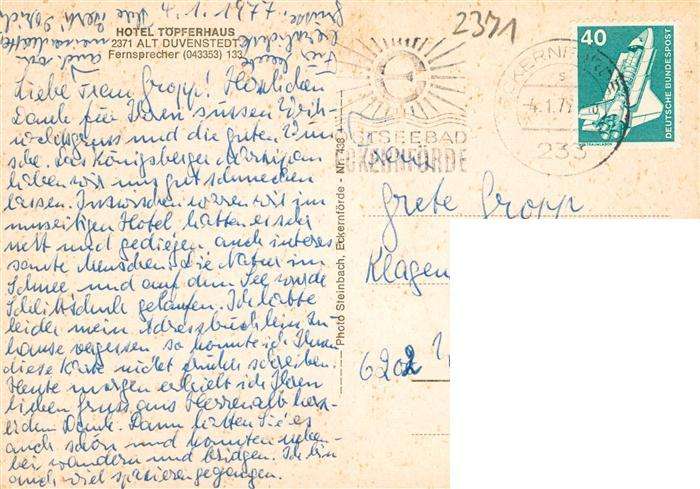 4.1.1977
HOTEL TÖPFERHAUS
2371 ALT DUVENSTEDT
Fernsprecher (043353) 133
Liebe Frau Gropp! Herzlichen
Dank für Ihren süssen Weih-
nachtsgruss und die guten Wün-
sche. Das Königsberger Marzipan
haben wir uns gut schmecken
lassen. Inzwischen waren wir im
umseitigen Hotel, hatten es sehr
nett und gediegen, auch interes
sante Menschen. Die Natur im
Schnee und auf dem See wurde
Schlittschuh gelaufen. Ich hatte
leider mein Adressbüchlein zu
hause vergessen so konnte ich Ihnen
diese Karte nicht früher schreiben.
Heute morgen erhielt ich Ihren
lieben Gruss aus Herrenalb herz-
lichen Dank. Dann hatten Sie es
auch schön und konnten neben-
bei wandern und bridgen. Ich bin
auch viel spazierengegangen.
Photo Steinbach, Eckernförde - Nr. 438
2371
OSTSEEBAD
ECKERNFÖRDE
ECKERNFÖRDE
4.1.77
233
40
DEUTSCHE BUNDESPOST
Frau
Grete Gropp
Klagen
6202